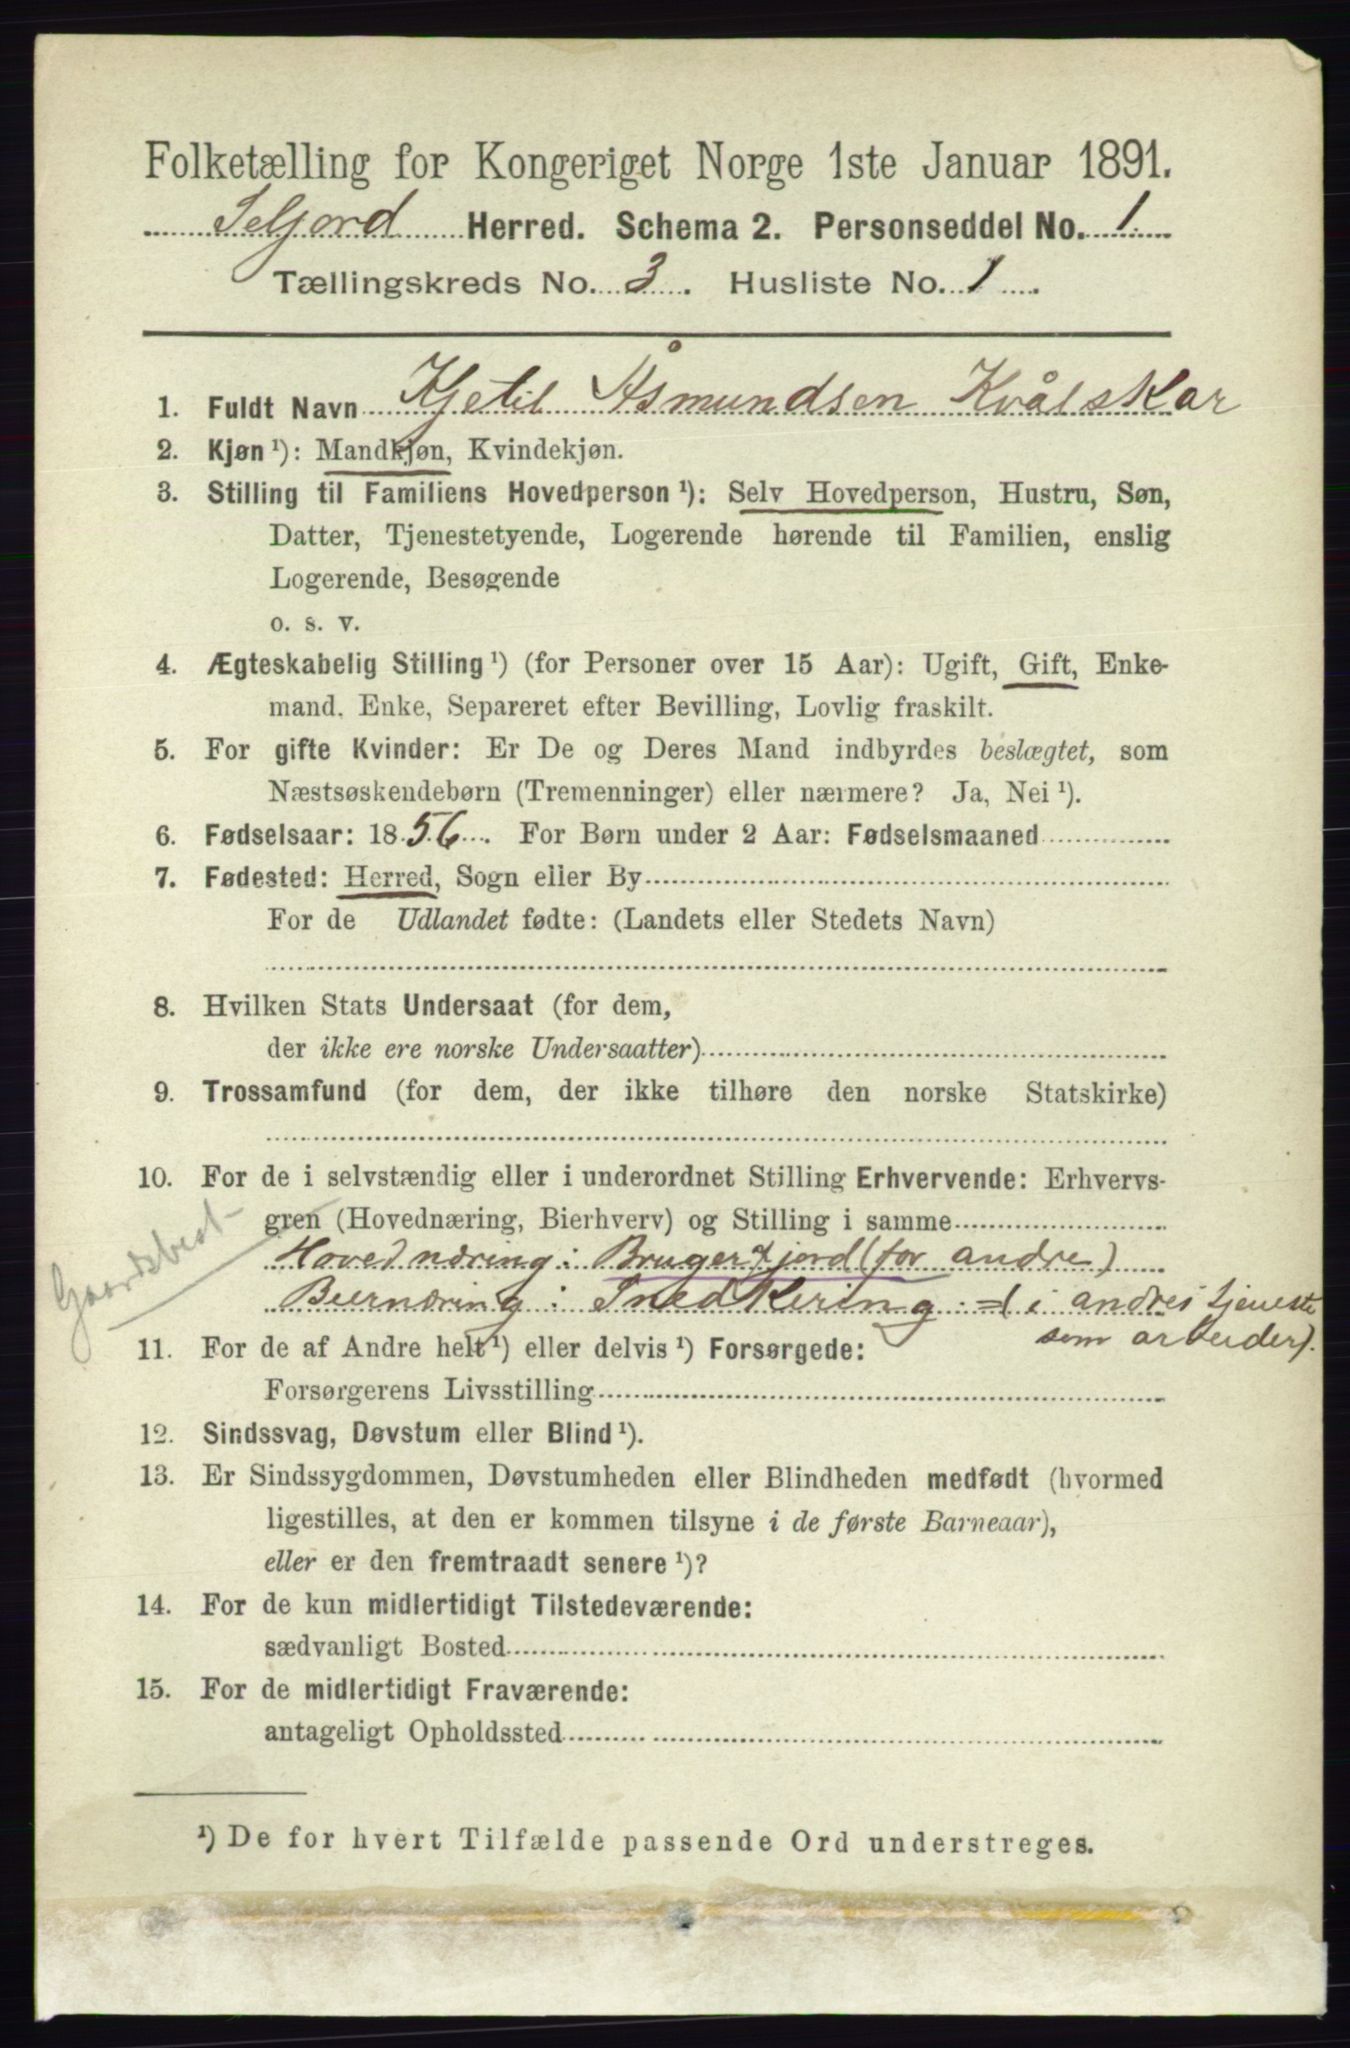 Folketælling for Kongeriget Norge 1ste Januar 1891.
Seljord Herred. Schema 2. Personseddel No. 1
Tællingskreds No. 3. Husliste No. 1.
1. Fuldt Navn Kjetil Åsmundsen Kvålskar
2. Kjøn ¹): Mandkjøn, Kvindekjøn.
3. Stilling til Familiens Hovedperson ¹): Selv Hovedperson, Hustru, Søn,
Datter, Tjenestetyende, Logerende hørende til Familien, enslig
Logerende, Besøgende
o. s. v.
4. Ægteskabelig Stilling ¹) (for Personer over 15 Aar): Ugift, Gift, Enke-
mand, Enke, Separeret efter Bevilling, Lovlig fraskilt.
5. For gifte Kvinder: Er De og Deres Mand indbyrdes beslægtet, som
Næstsøskendebørn (Tremenninger) eller nærmere? Ja, Nei ¹).
6. Fødselsaar: 1856. For Børn under 2 Aar: Fødselsmaaned
7. Fødested: Herred, Sogn eller By
For de Udlandet fødte: (Landets eller Stedets Navn)
8. Hvilken Stats Undersaat (for dem,
der ikke ere norske Undersaatter)
9. Trossamfund (for dem, der ikke tilhøre den norske Statskirke)
10. For de i selvstændig eller i underordnet Stilling Erhvervende: Erhvervs-
gren (Hovednæring, Bierhverv) og Stilling i samme
Gaardsbest
Hovednæring: Bruger jord (for andre)
Beernæring: Snedkering =(i andres tjeneste
som arbeider).
11. For de af Andre helt ¹) eller delvis ¹) Forsørgede:
Forsørgerens Livsstilling
12. Sindssvag, Døvstum eller Blind ¹).
13. Er Sindssygdommen, Døvstumheden eller Blindheden medfødt (hvormed
ligestilles, at den er kommen tilsyne i de første Barneaar),
eller er den fremtraadt senere ¹)?
14. For de kun midlertidigt Tilstedeværende:
sædvanligt Bosted
15. For de midlertidigt Fraværende:
antageligt Opholdssted
¹) De for hvert Tilfælde passende Ord understreges.